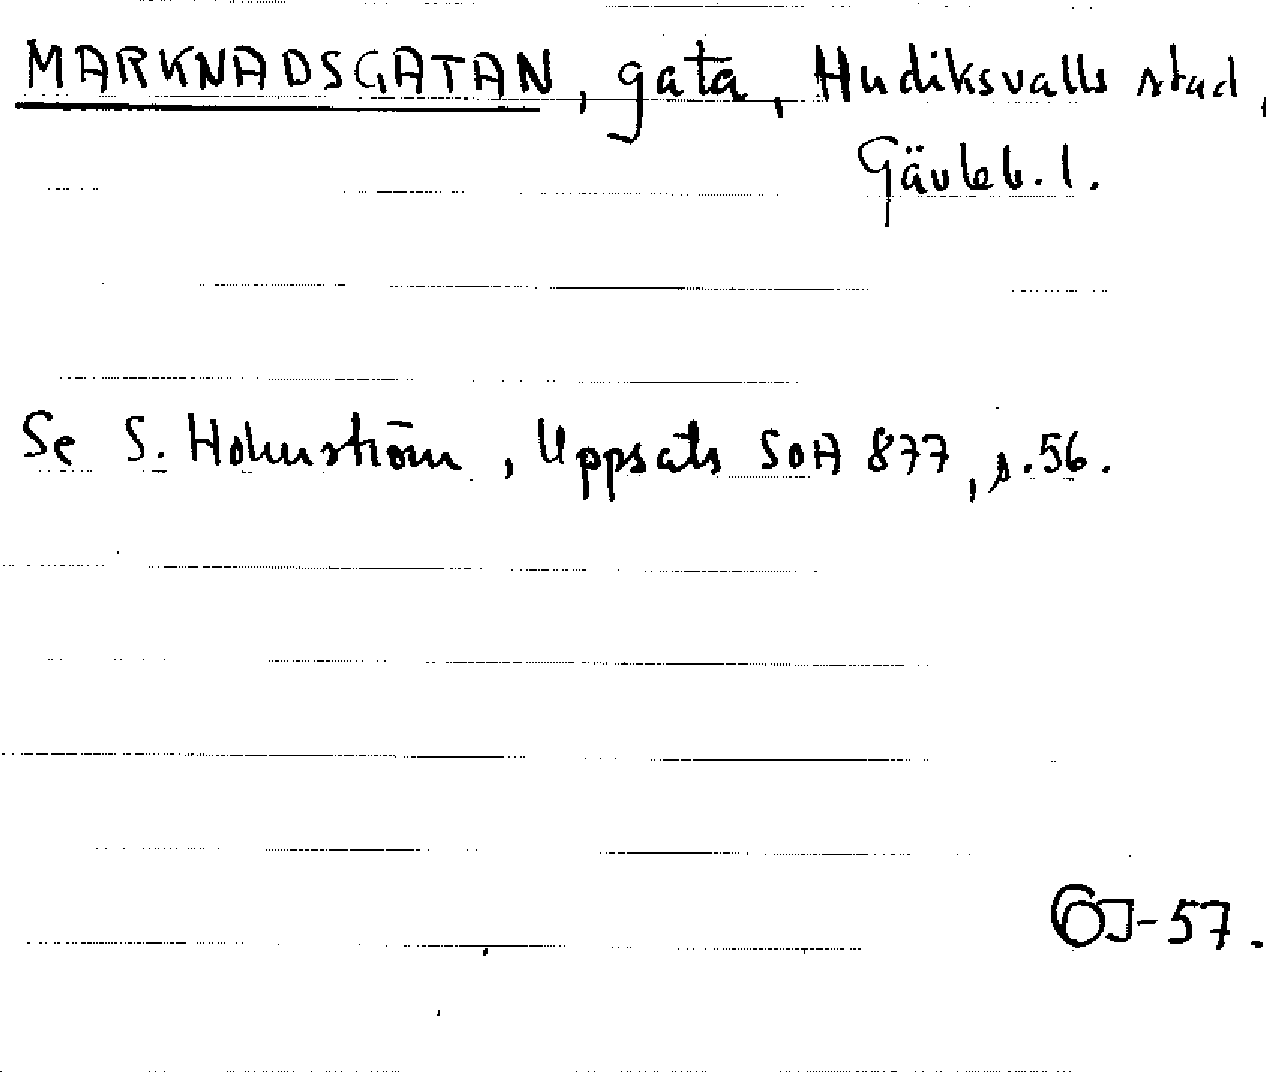 MARKNADSGATAN, gata, Hudiksvalls stad,
Gävleb. l.
Se S. Holmström, Uppsats SOA 877, s. 56.
-57.